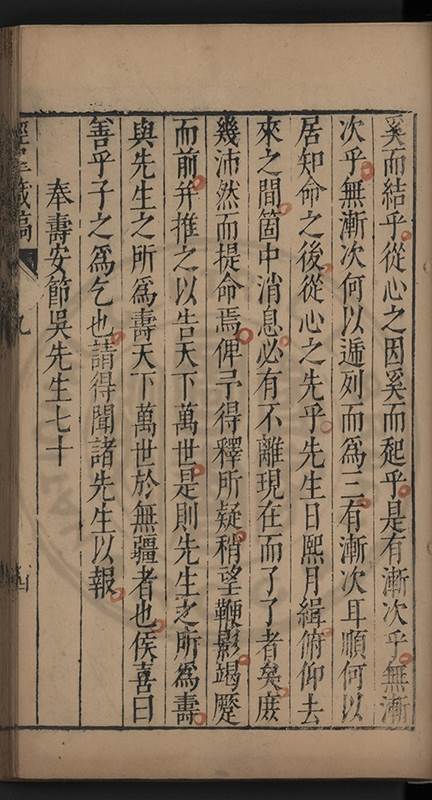 奚而結乎從心之因奚而起乎是有漸次乎無漸
次乎無漸次何以遞列而爲三有漸次耳順何以
居知命之後從心之先乎先生日熙月緝俯仰去
來之間箇中消息必有不離現在而了了者矣庶
幾沛然而提命焉俾予得釋所疑稍望鞭影竭蹷
而前并推之以告天下萬世是則先生之所爲壽
與先生之所爲壽天下萬世於無疆者也侯喜曰
善乎子之爲乞也請得聞諸先生以報
奉壽安節吳先生七十
藏稿
九